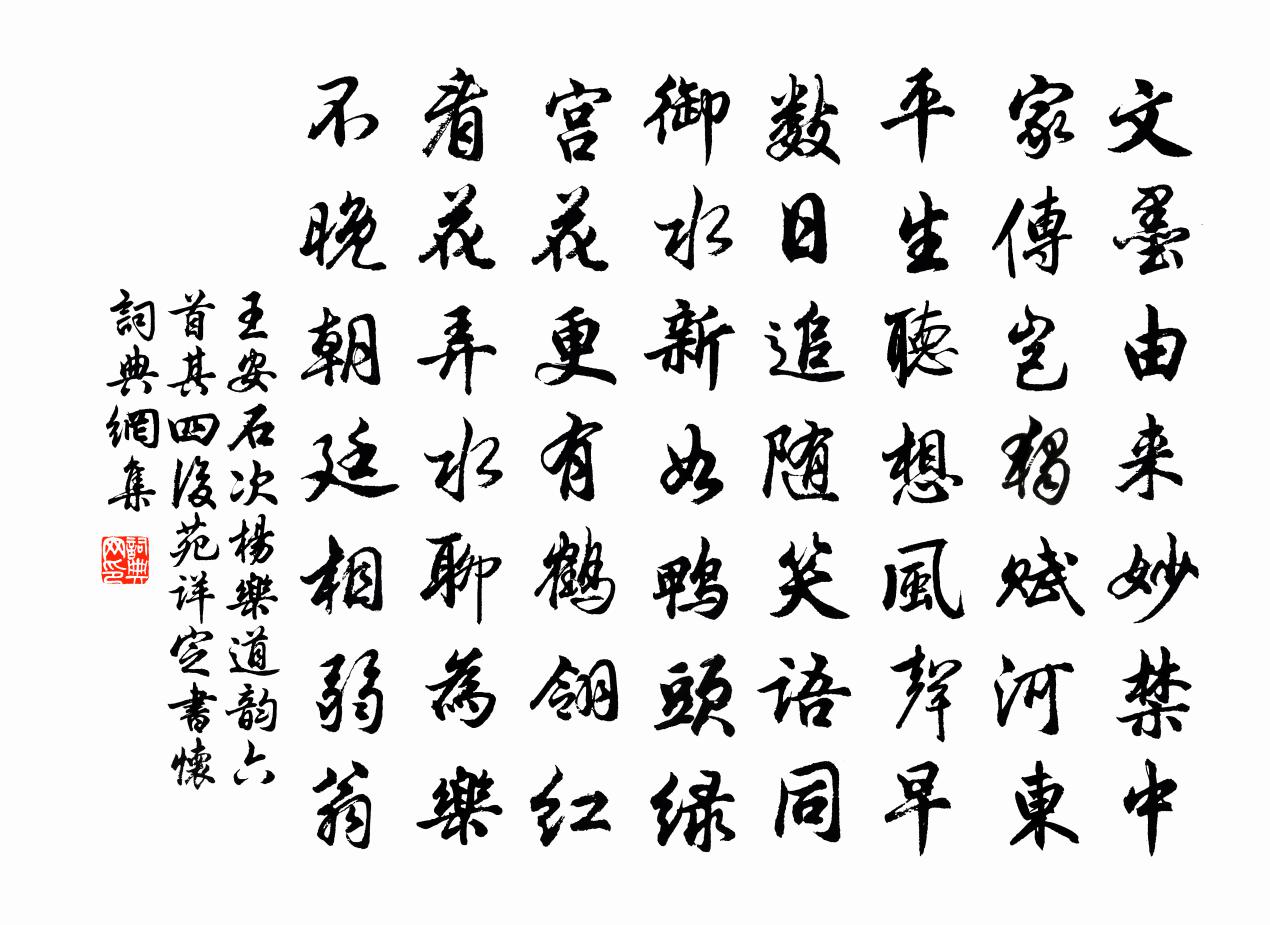 文墨由来妙禁中
家傳豈獨賦河東
平生聽想風聲早
數日追随笑語同
御水新如鴨頭绿
宮花更有鶴翎红
看花弄水聊為樂
不晚朝廷相弱翁
王安石次楊樂道韵六
首其四後苑详定書懷
詞典網集
詞典网印